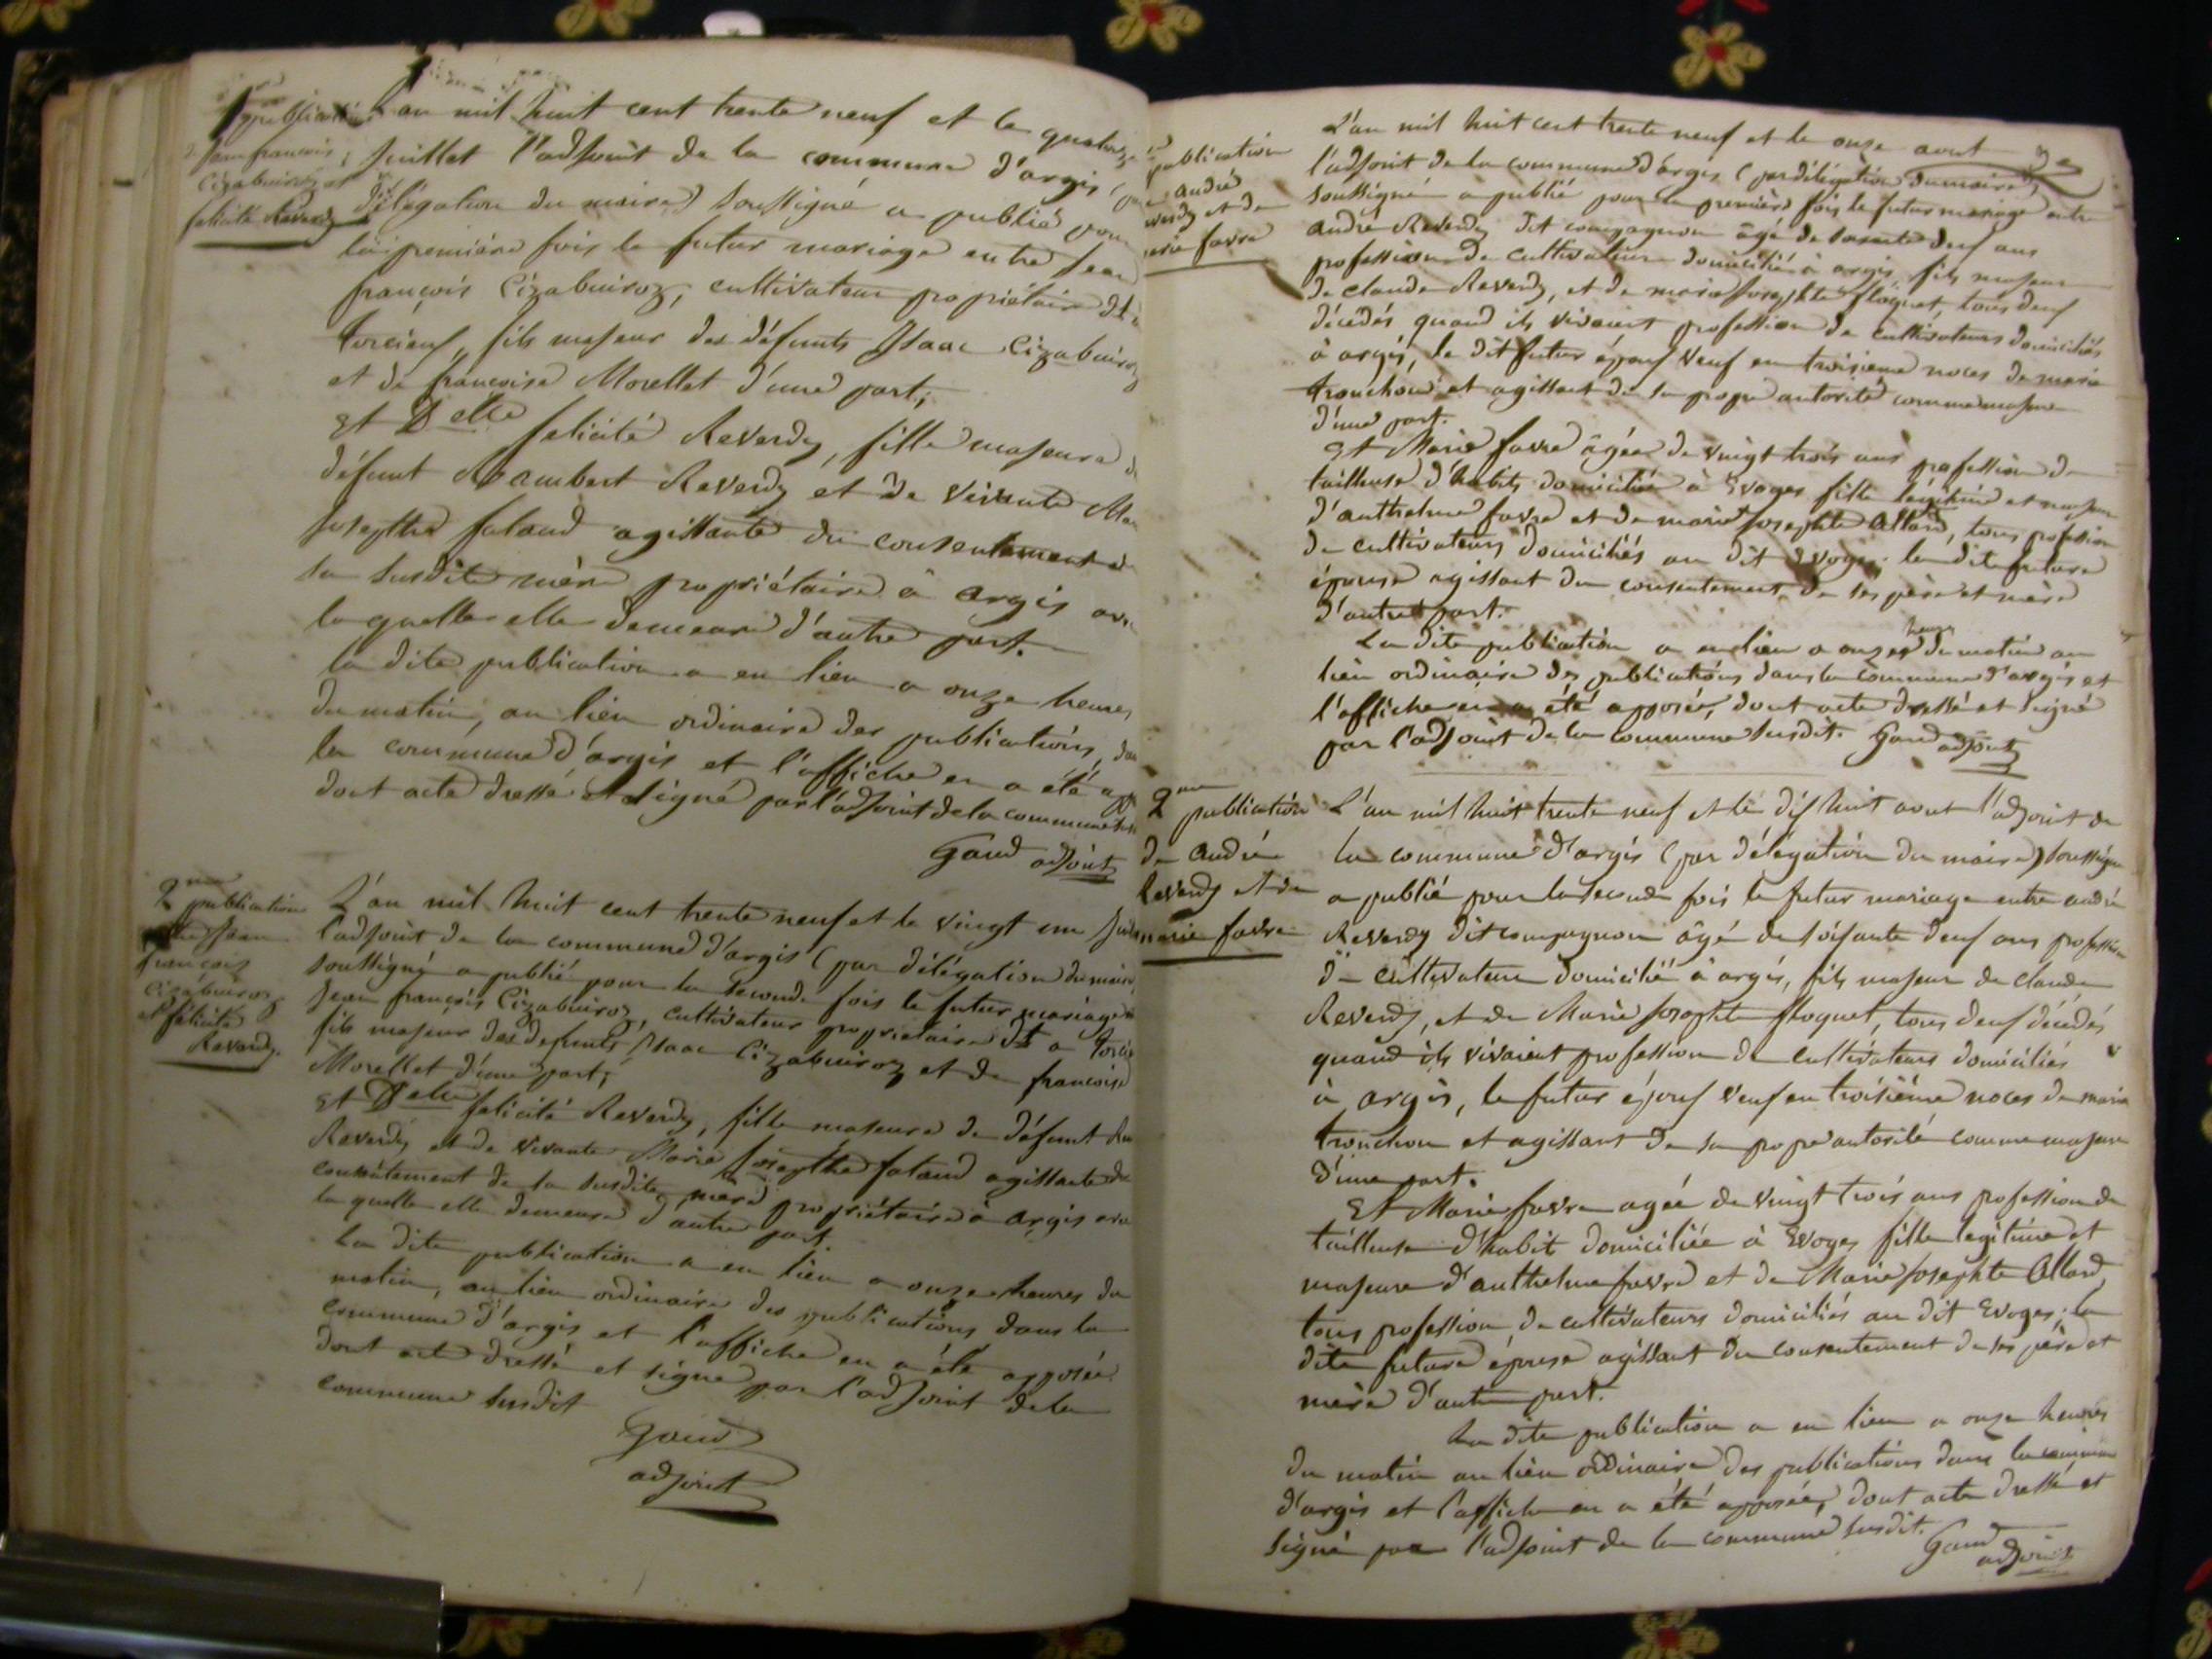 1re publication
de Jean françois
Cizabuiroz et
felicité Reverdy
L'an mil huit cent trente neuf et le quatorze
Juillet l'adjoint de la commune d'argis (par
délégation du maire) soussigné a publié pour
la première fois le futur mariage entre Jean
françois Cizabuiroz, cultivateur propriétaire dt à
torcieux, fils majeur des défunts Isaac Cizabuiroz
et de françoise Morellet d'une part;
Et Delle felicité Reverdy, fille majeure de
défunt Rambert Reverdy et de vivante Marie
Josephte faland agissante du consentement de
sa susdite mère propriétaire à argis avec
laquelle elle demeure d'autre part.
la dite publication a eu lieu a onze heures
du matin, au lieu ordinaire des publications, dans
la commune d'argis et l'affiche en a été app
dont acte dressé et signé par l'adjoint de la commune susdit
Gaud adjoint
2me publication
entre Jean
françois
Cizabuiroz
et félicité
Reverdy.
L'an mil huit cent trente neuf et le vingt un Juillet
l'adjoint de la commune d'argis (par délégation du maire)
soussigné a publié pour la seconde fois le futur mariage
Jean françois Cizabuiroz, cultivateur propriétaire dt a torcieux
fils majeur des defunts Isaac Cizabuiroz et de françoise
Morellet d'une part;
Et Delle felicité Reverdy, fille majeure de défunt
Reverdy et de vivante Marie Josephte faland agissante du
consentement de sa susdite mère propriétaire à argis avec
laquelle elle demeure d'autre part.
La dite publication a eu lieu a onze heures du
matin, au lieu ordinaire des publications dans la
commune d'argis et l'affiche en a été apposée
dont acte dressé et signé par l'adjoint de la
commune susdit
Gaud
adjoint
publication
andré
Reverdy et de
marie favre
L'an mil huit cent trente neuf et le onze aout
l'adjoint de la commune d'argis (par délégation du maire)
soussigné a publié pour la première fois le futur mariage entre
andré Reverdy dit compagnon âgé de soixante deux ans
profession de cultivateur domicilié à argis, fils majeur
de claude Reverdy, et de marie Josephte floquet, tous deux
décédés, quand ils vivaient profession de cultivateurs domiciliés
à argis, le dit futur époux veuf en troisieme noces de marie
tronchon et agissant de sa propre autorité comme majeur
d'une part.
Et Marie favre âgée de vingt trois ans profession de
tailleuse d'habits domiciliée à Evoges fille légitime et majeure
d'anthelme favre et de marie Josephte Allard, tous profession
de cultivateurs domiciliés au dit Evoges. la dite future
épouse agissant du consentement de ses père et mère
d'autre part.
La dite publication a eu lieu a onze heures du matin au
lieu ordinaire des publications dans la commune d'argis et
l'affiche en a été apposée, dont acte dressé et signé
par l'adjoint de la commune susdit. Gaud adjoint
2me publication
de andré
Reverdy et de
marie favre
L'an mil huit trente neuf et le dix huit aout l'adjoint de
la commune d'argis (par délégation du maire) soussigné
a publié pour la seconde fois le futur mariage entre andré
Reverdy dit compagnon âgé de soixante deux ans profession
de cultivateur domicilié à argis, fils majeur de claude
Reverdy, et de Marie Josephte floquet, tous deux décédés,
quand ils vivaient profession de cultivateurs domiciliés
à argis, le futur époux veuf en troisième noces de marie
tronchon et agissant de sa propre autorité comme majeur
d'une part.
Et Marie favre agée de vingt trois ans profession de
tailleuse d'habit domiciliée à Evoges fille legitime et
majeure d'anthelme favre et de Marie Josephte Allard,
tous profession de cultivateurs domiciliés au dit Evoges; la
dite future épouse agissant du consentement de ses père et
mère d'autre part.
La dite publication a eu lieu a onze heures
du matin au lieu ordinaire des publications dans la commune
d'argis et l'affiche en a été apposée, dont acte dressé et
signé par l'adjoint de la commune susdit.
Gaud
adjoint